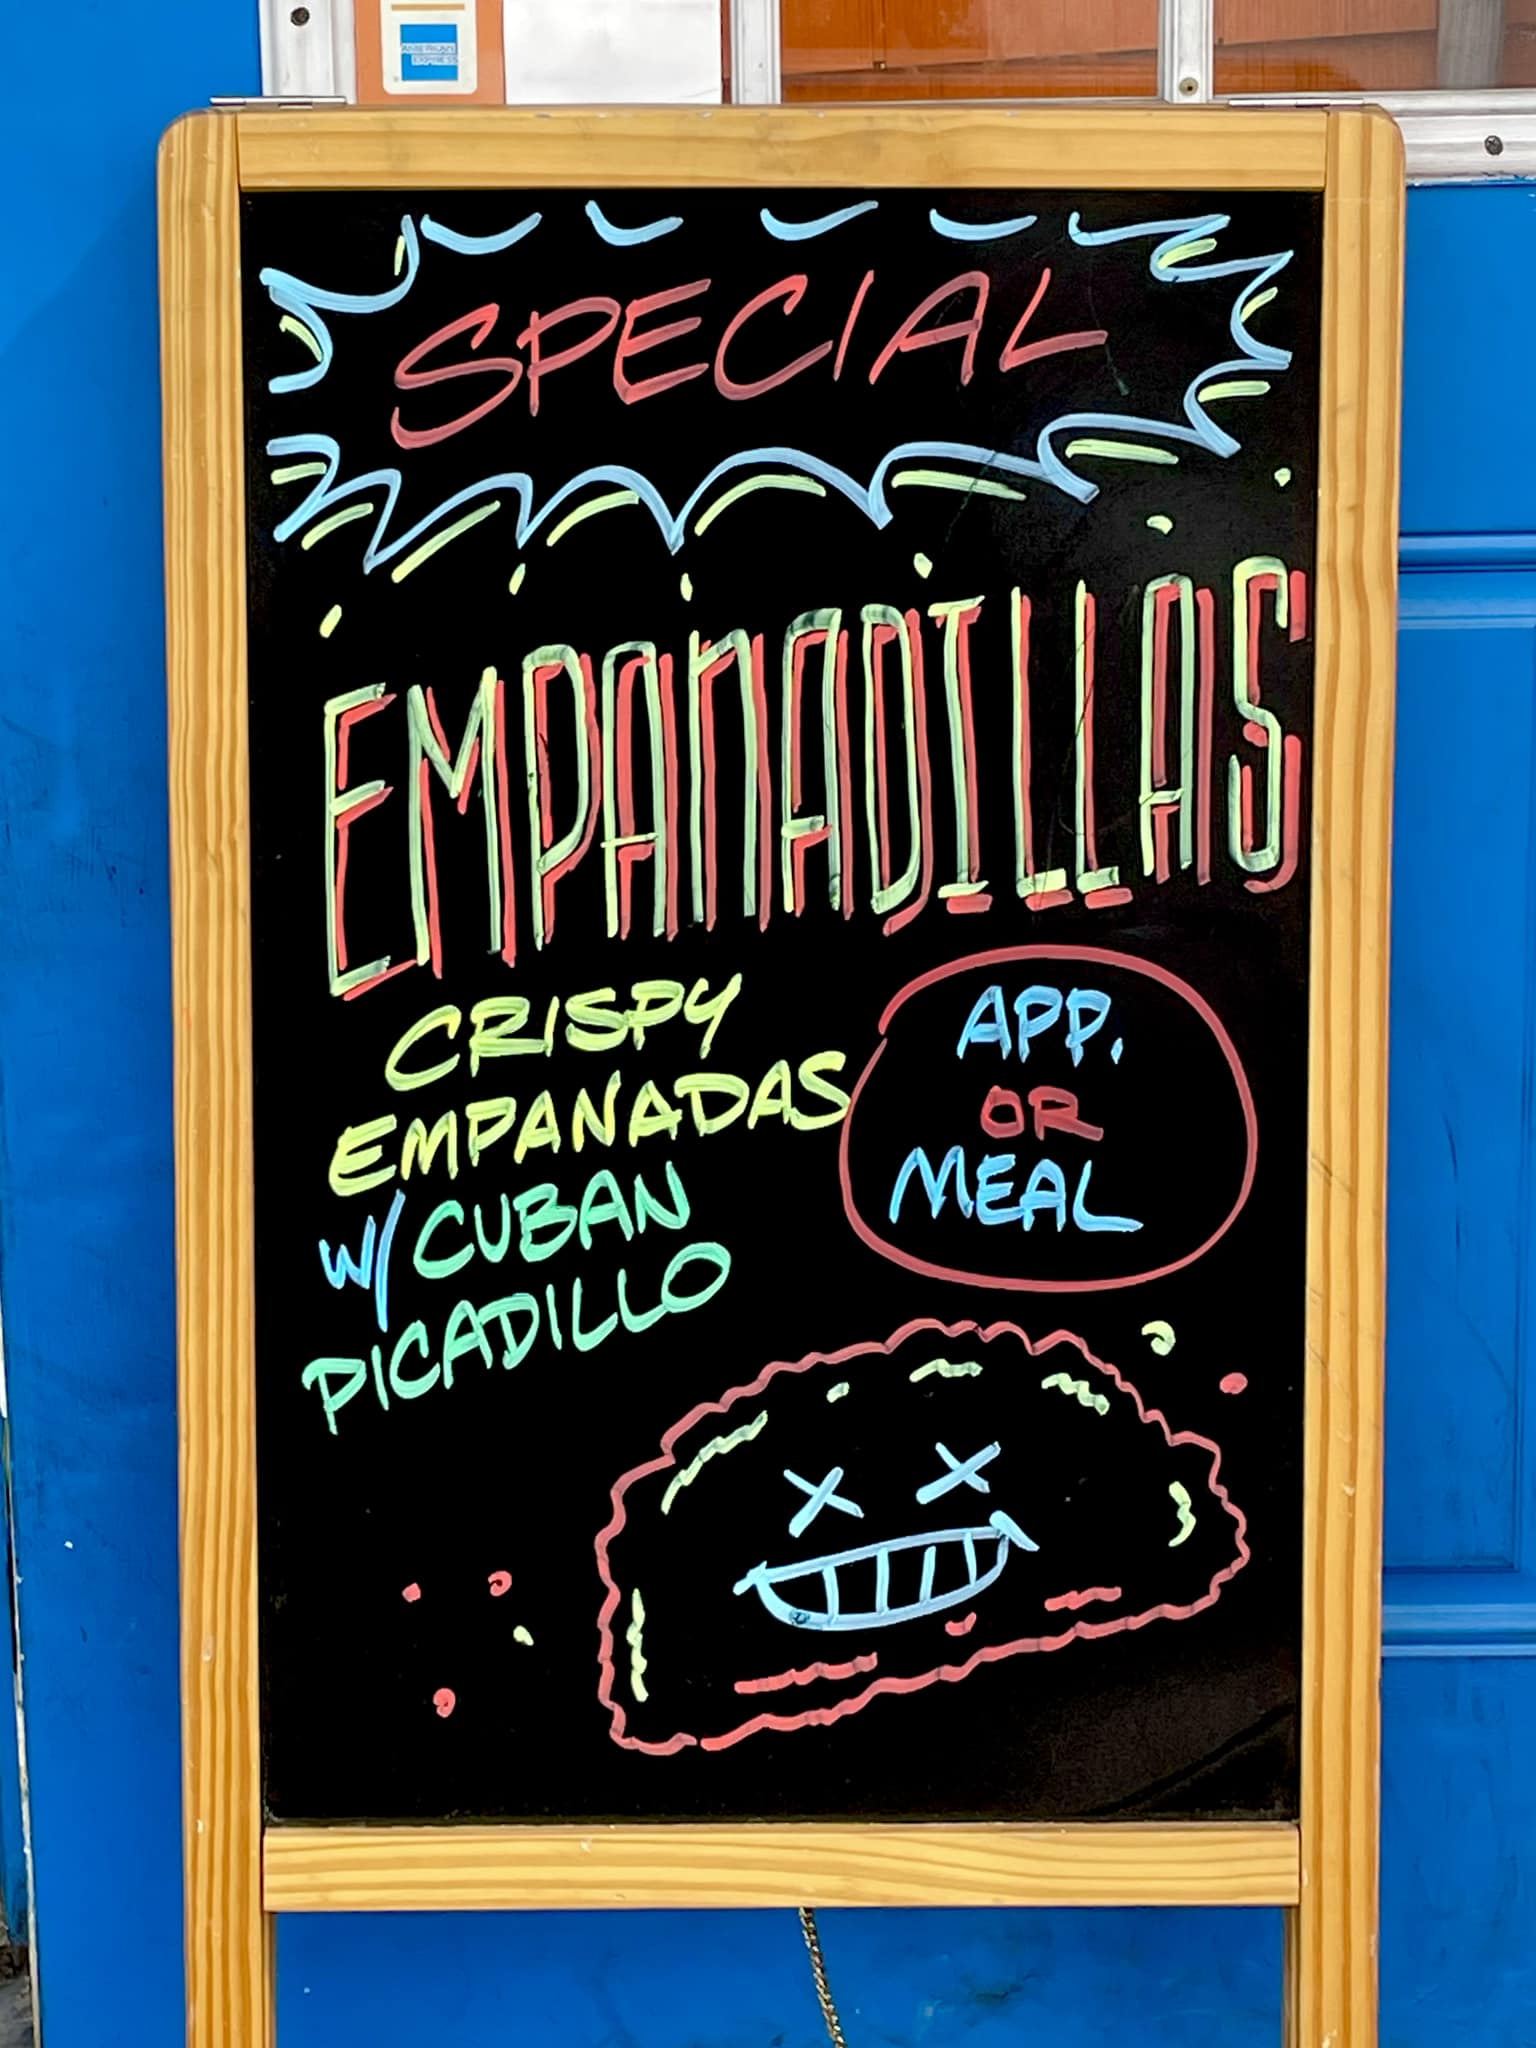 AMERICAN
EXPRESS
SPECIAL
EMPANADILLAS
CRISPY
EMPANADAS
W/ CUBAN
PICADILLO
APP.
OR
MEAL